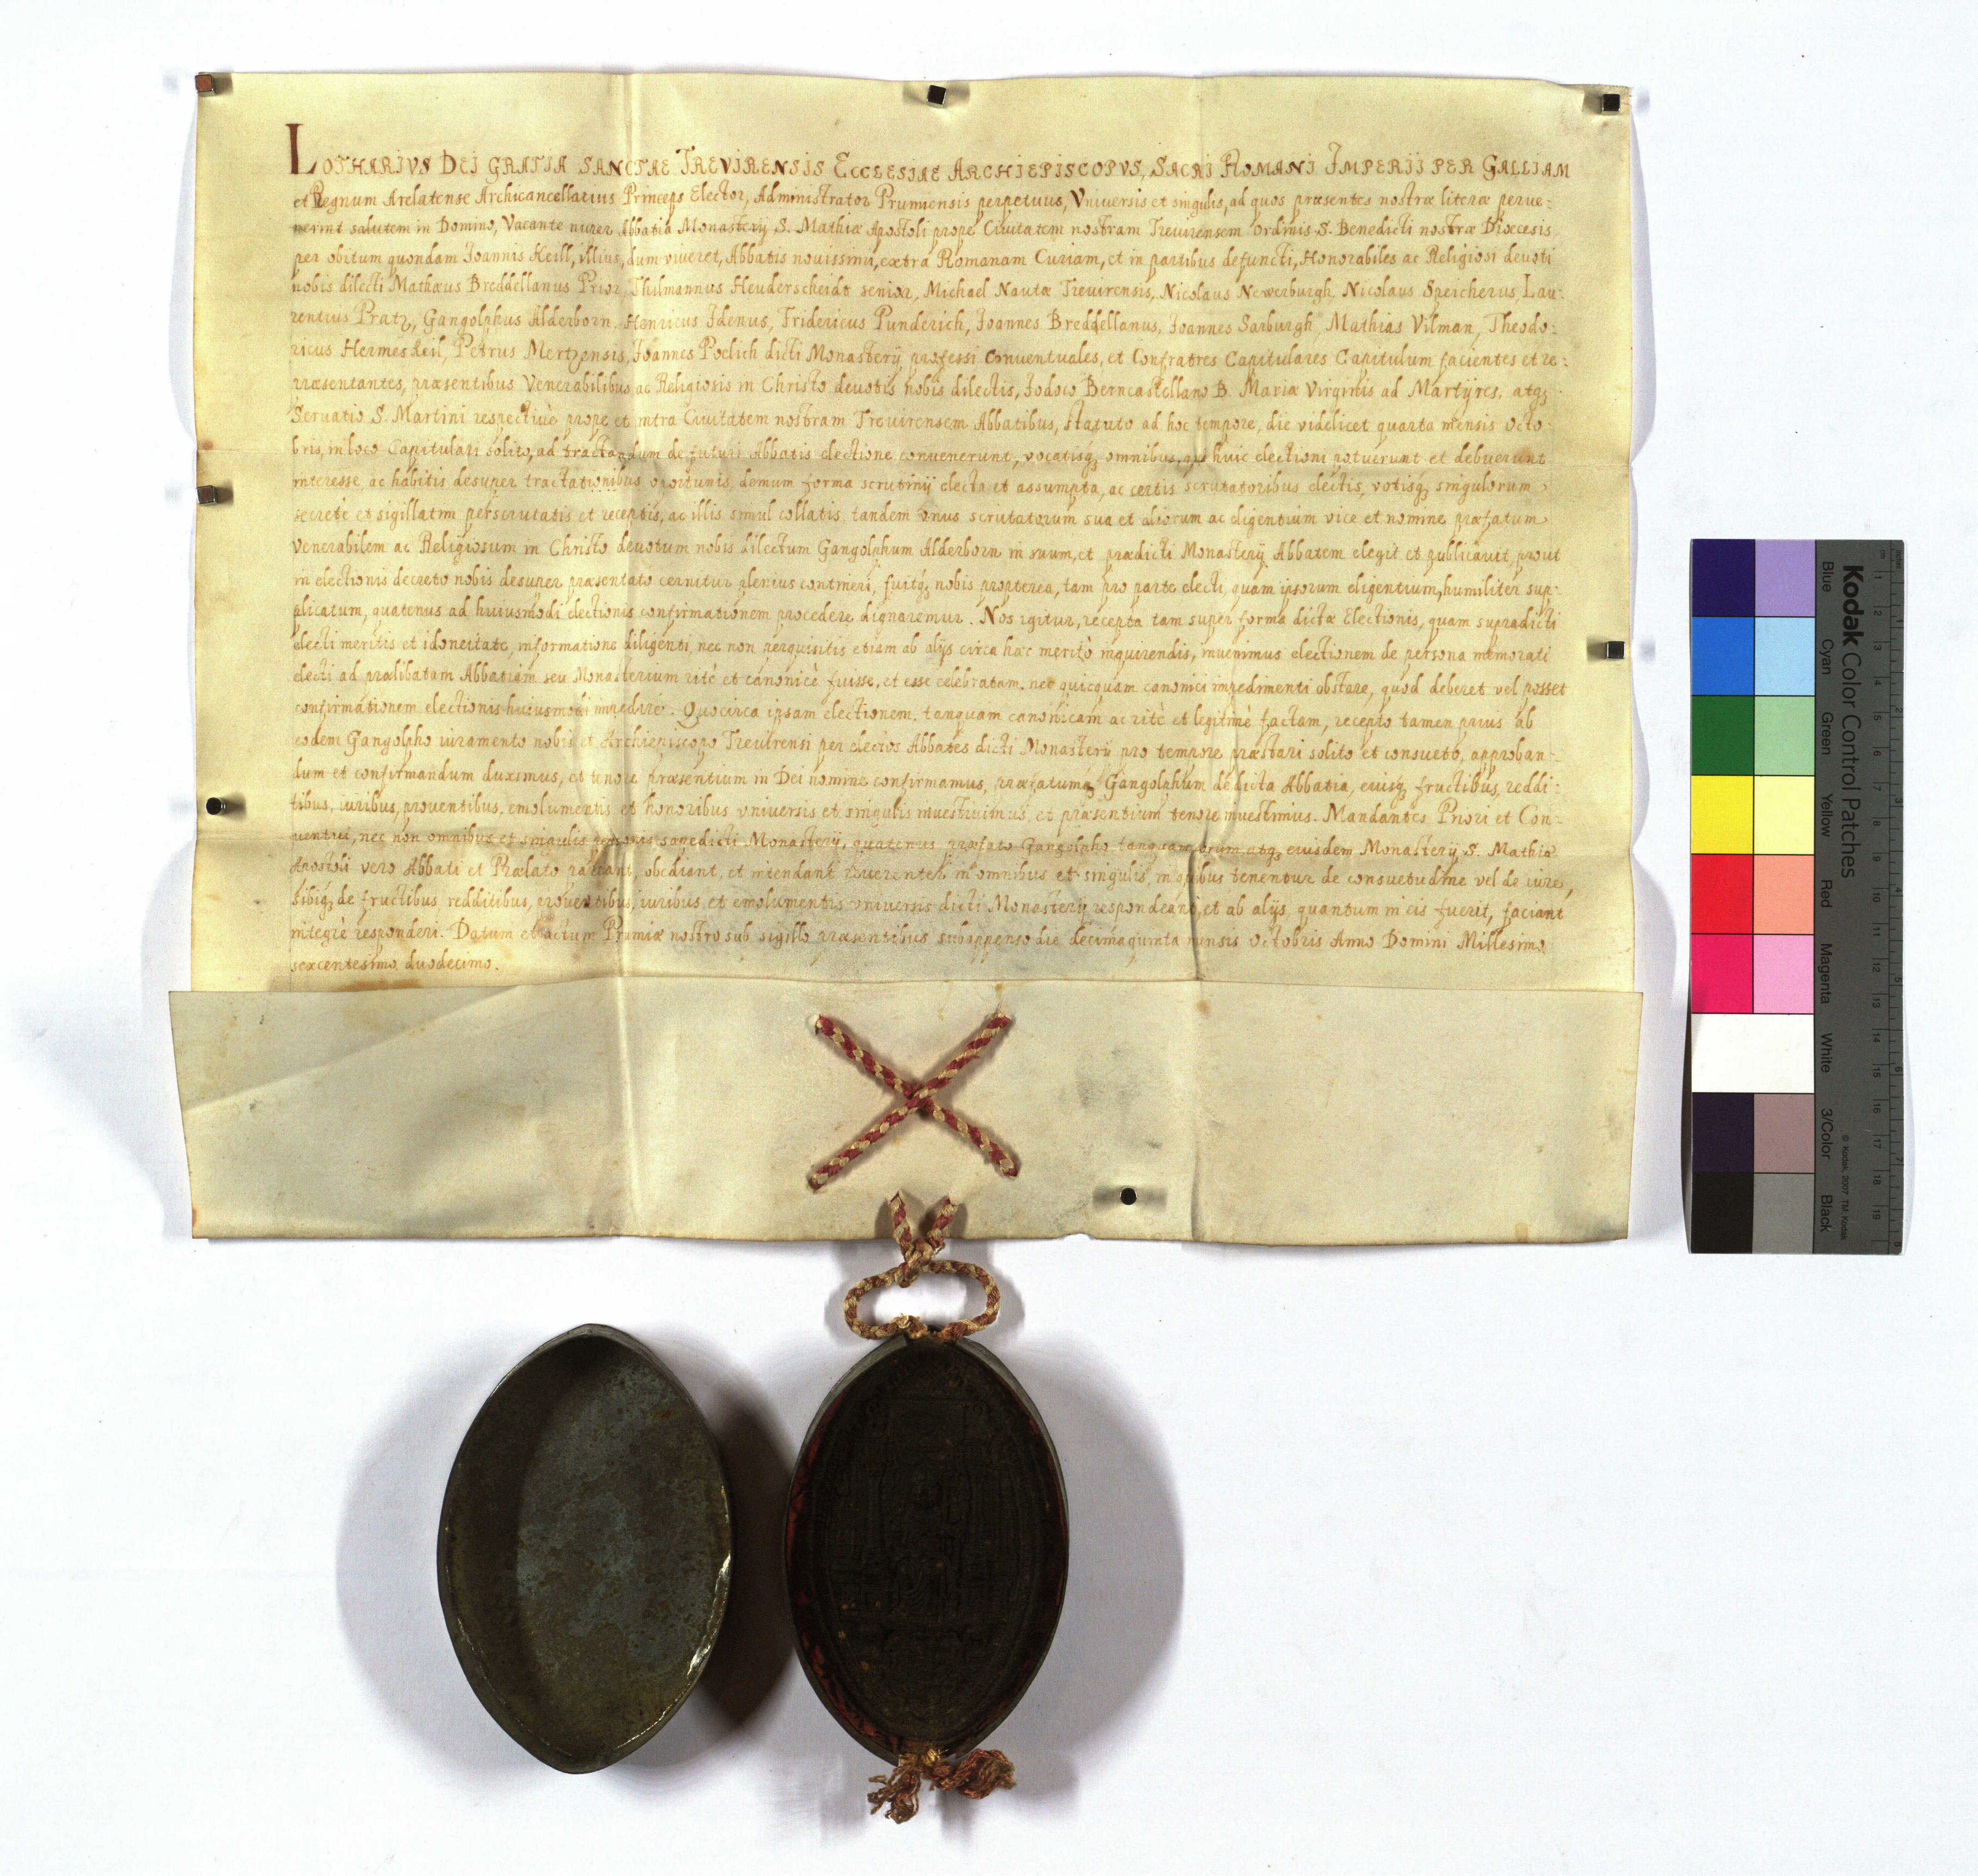 LOTHARIVS DEI GRATIA SANCTAE TREVIRENSIS ECCLESIAE ARCHIEPISCOPVS, SACRI ROMANI IMPERII PER GALLIAM
et Regnum Arelatense Archicancellarius Princeps Elector, Administrator Prumiensis perpetuus, Vniversis et singulis, ad quos præsentes nostræ literæ perue-
nerint salutem in Domino, Vacante nuper Abbatia Monasterij S. Mathiæ Apostoli prope Ciuitatem nostram Treuirensem Ordinis S. Benedicti nostræ Diœcesis
per obitum quondam Joannis Keill, illius, dum viueret, Abbatis nouissimi, extra Romanam Curiam, et in partibus defuncti, Honorabiles ac Religiosi deuoti
nobis dilecti Mathæus Breddellanus Prior, Thilmannus Heuderscheidt senior, Michael Nauta Treuirensis, Nicolaus Newerburgh, Nicolaus Speicherus, Lau-
rentius Pratz, Gangolphus Alderborn, Henricus Idenus, Fridericus Punderich, Joannes Breddellanus, Joannes Sarburgh, Mathias Vilman, Theodo-
ricus Hermeskeil, Petrus Mertzensis, Joannes Poelich dicti Monasterij professi Conuentuales, et Confratres Capitulares Capitulum facientes et re-
præsentantes, præsentibus Venerabilibus ac Religiosis in Christo deuotis nobis dilectis, Jodoco Berncastellano B. Mariæ Virginis ad Martyres, atq;
Seruatio S. Martini respectiuè prope et intra Ciuitatem nostram Treuirensem Abbatibus, statuto ad hoc tempore, die videlicet quarta mensis Octo-
bris, in loco Capitulari solito, ad tractandum de futuri Abbatis electione conuenerunt, vocatisq; omnibus, qui huic electioni potuerunt et debuerunt
interesse, ac habitis desuper tractationibus oportunis, demum forma scrutinij electa et assumpta, ac certis scrutatoribus electis, votisq; singulorum
secretè et sigillatim perscrutatis et receptis, ac illis simul collatis, tandem vnus scrutatorum sua et aliorum ac eligentium vice et nomine præfatum
Venerabilem ac Religiosum in Christo deuotum nobis dilectum Gangolphum Alderborn in suum, et prædicti Monasterij Abbatem elegit et publicauit, prout
in electionis decreto nobis desuper præsentato cernitur plenius contineri, fuitq; nobis propterea, tam pro parte electi, quam ipsorum eligentium, humiliter sup-
plicatum, quatenus ad huiusmodi electionis confirmationem procedere dignaremur. Nos igitur, recepta tam super forma dictæ Electionis, quam supradicti
electi meritis et idoneitate, informatione diligenti, nec non perquisitis etiam ab alijs circa hæc meritò inquirendis, inuenimus electionem de persona memorati
electi ad prælibatam Abbatiam seu Monasterium ritè et canonicè fuisse, et esse celebratam, nec quicquam canonici impedimenti obstare, quod deberet vel posset
confirmationem electionis huiusmodi impedire. Quocirca ipsam electionem, tanquam canonicam ac ritè et legitimè factam, recepto tamen prius ab
eodem Gangolpho iuramento nobis et Archiepiscopo Treuirensi per electos Abbates dicti Monasterij pro tempore præstari solito et consueto, approban-
dum et confirmandum duximus, et tenore præsentium in Dei nomine confirmamus, præfatumq; Gangolphum de dicta Abbatia, eiusq; fructibus, reddi-
tibus, iuribus, prouentibus, emolumentis et honoribus vniuersis et singulis inuestiuimus, et præsentium tenore inuestimus. Mandantes Priori et Con-
uentui, nec non omnibus et singulis personis sæpedicti Monasterij, quatenus præfato Gangolpho, tanquam verum atq; eiusdem Monasterij S. Mathiæ
Apostoli vero Abbati et Prælato pareant, obediant, et intendant reuerenter in omnibus et singulis, in quibus tenentur de consuetudine vel de iure,
sibiq; de fructibus, redditibus, prouentibus, iuribus et emolumentis vniuersis dicti Monasterij respondeant, et ab alijs, quantum in eis fuerit, faciant
integrè responderi. Datum et actum Prumiæ nostro sub sigillo præsentibus subappenso die decimaquinta mensis Octobris Anno Domini Millesimo
sexcentesimo duodecimo.
Kodak Color Control Patches
Blue Cyan Green Yellow Red Magenta White 3/Color Black
© Kodak, 2007 TM: Kodak
1 2 3 4 5 6 7 8 9 10 11 12 13 14 15 16 17 18 19